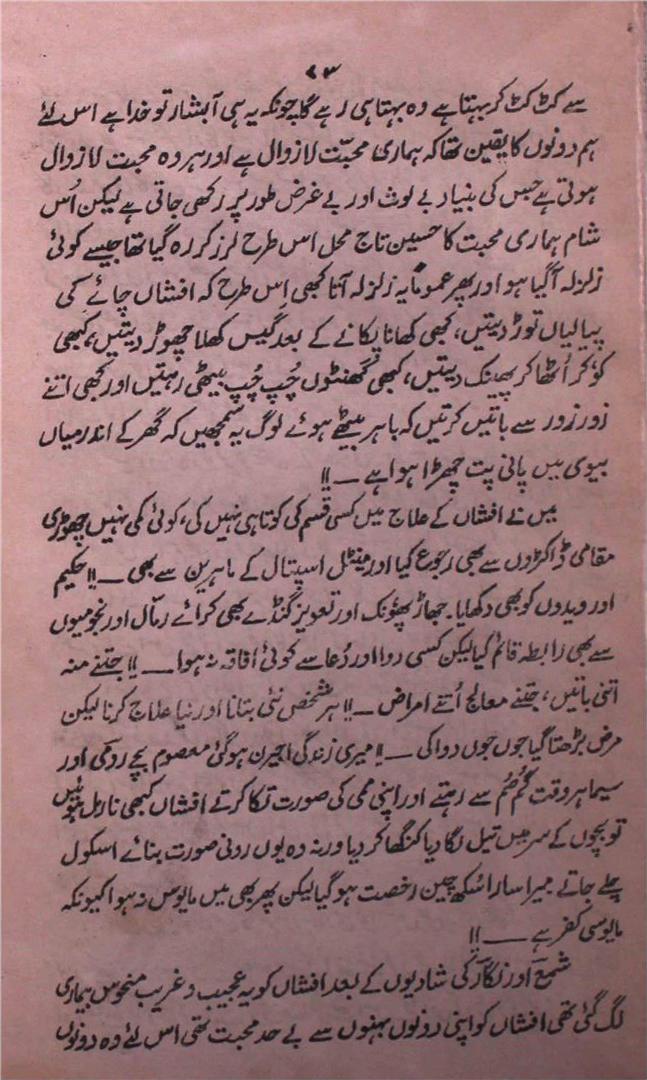 ۷۳
سے کٹ کٹ کر بہتا ہے وہ بہتا ہی رہے گا چونکہ یہ ہی آبشار تو خدا ہے اس لئے
ہم دونوں کا یقین تھا کہ ہماری محبّت لازوال ہے اور ہر وہ محبت لازوال
ہوتی ہے جس کی بنیاد بے لوث اور بے غرض طور پر رکھی جاتی ہے لیکن اُس
شام ہماری محبت کا حسین تاج محل اس طرح لرز کر رہ گیا تھا جیسے کوئی
زلزلہ آگیا ہو اور پھر عموماً یہ زلزلہ آتا کبھی اِس طرح کہ افشاں چائے کی
پیالیاں توڑ دیتیں، کبھی کھانا پکانے کے بعد گیس کھلا چھوڑ دیتیں، کبھی
کوکر اُٹھا کر پھینک دیتیں، کبھی گھنٹوں چُپ چُپ بیٹھی رہتیں اور کبھی اتنے
زور زور سے باتیں کرتیں کہ باہر بیٹھے ہوئے لوگ یہ سمجھیں کہ گھر کے اندر میاں
بیوی میں پانی پت چھڑا ہوا ہے ــ !!
میں نے افشاں کے علاج میں کسی قسم کی کوتاہی نہیں کی، کوئی کمی نہیں چھوڑی
مقامی ڈاکٹروں سے بھی رجوع کیا اور مینٹل اسپتال کے ماہرین سے بھی ــ !! حکیم
اور ویدوں کو بھی دکھایا۔ جھاڑ پھونک اور تعویز گنڈے بھی کرائے رمّال اور نجومیوں
سے بھی رابطہ قائم کیا لیکن کسی دوا اور دُعا سے کوئی افاقہ نہ ہوا ــ !! جتنے منہ
اتنی باتیں، جتنے معالج اُتنے امراض ــ !! ہر شخص نئی بتاتا اور نیا علاج کرتا لیکن
مرض بڑھتا گیا جوں جوں دوا کی ــ !! میری زندگی اجیرن ہوگئی معصوم بچے رومی اور
سیما ہر وقت گم صُم سے رہتے اور اپنی ممی کی صورت تکا کرتے افشاں کبھی نارمل ہوتیں
تو بچوں کے سر میں تیل لگا دیا کنگھا کر دیا ورنہ وہ یوں رونی صورت بنائے اسکول
چلے جاتے میرا سارا سُکھ چین رخصت ہوگیا لیکن پھر بھی میں مایوس نہ ہوا کیونکہ
مایوسی کفر ہے ــ !!
شمع اور نگار کی شادیوں کے بعد افشاں کو یہ عجیب و غریب منحوس بیماری
لگ گئی تھی افشاں کو اپنی دونوں بہنوں سے بے حد محبت تھی اس لئے وہ دونوں